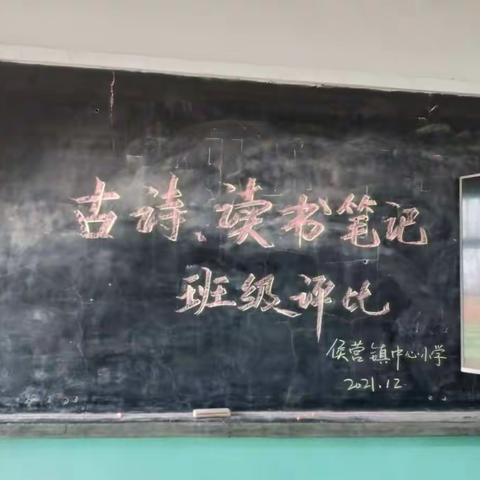 古诗、读书笔记
班级评比
侯营镇中心小学
2021.12